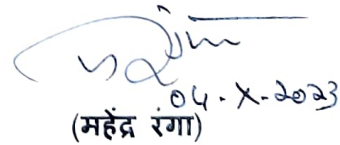 04-X-2023
(महेंद्र रंगा)